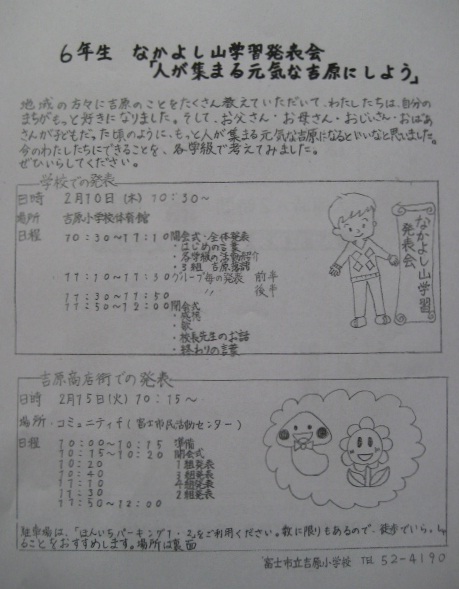 6年生 なかよし山学習発表会
「人が集まる元気な吉原にしよう」
地域の方々に吉原のことをたくさん教えていただいて、わたしたちは、自分の
まちがもっと好きになりました。そして、お父さん・お母さん・おじいさん・おばあ
さんが子どもだった頃のように、もっと人が集まる元気な吉原になるといいなと思いました。
今のわたしたちにできることを、各学級で考えてみました。
ぜひいらしてください。
学校での発表
日時 2月10日(木) 10:30~
場所 吉原小学校体育館
日程 10:30~11:10 開会式・全体発表
・はじめの言葉
・各学級の活動紹介
・3組 吉原落語
11:10~11:30 グループ毎の発表 前半
11:30~11:50 〃 後半
11:50~12:00 閉会式
・感想
・歌
・校長先生のお話
・終わりの言葉
なかよし山学習
発表会
吉原商店街での発表
日時 2月15日(火) 10:15~
場所 コミュニティf(富士市民活動センター)
日程 10:00~10:15 準備
10:15~10:20 開会式
10:20 1組発表
10:40 3組発表
11:10 4組発表
11:30 2組発表
11:50~12:00
駐車場は、「ほんいちパーキング1・2」をご利用ください。数に限りもあるので、徒歩でいらっしゃ
ることをおすすめします。場所は裏面
富士市立吉原小学校 TEL 52-4190